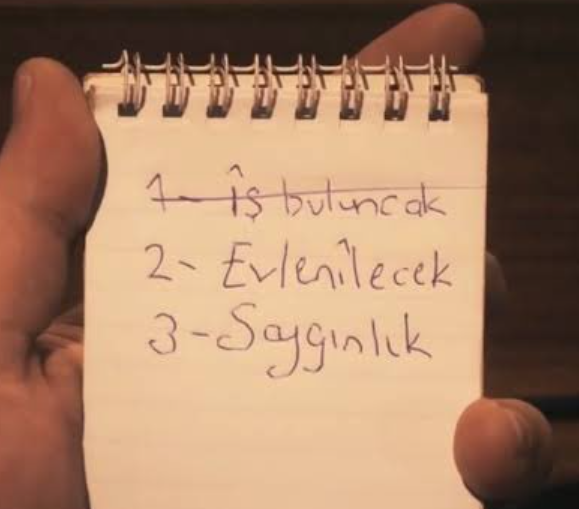 1- İş buluncak
2- Evlenilecek
3- Saygınlık